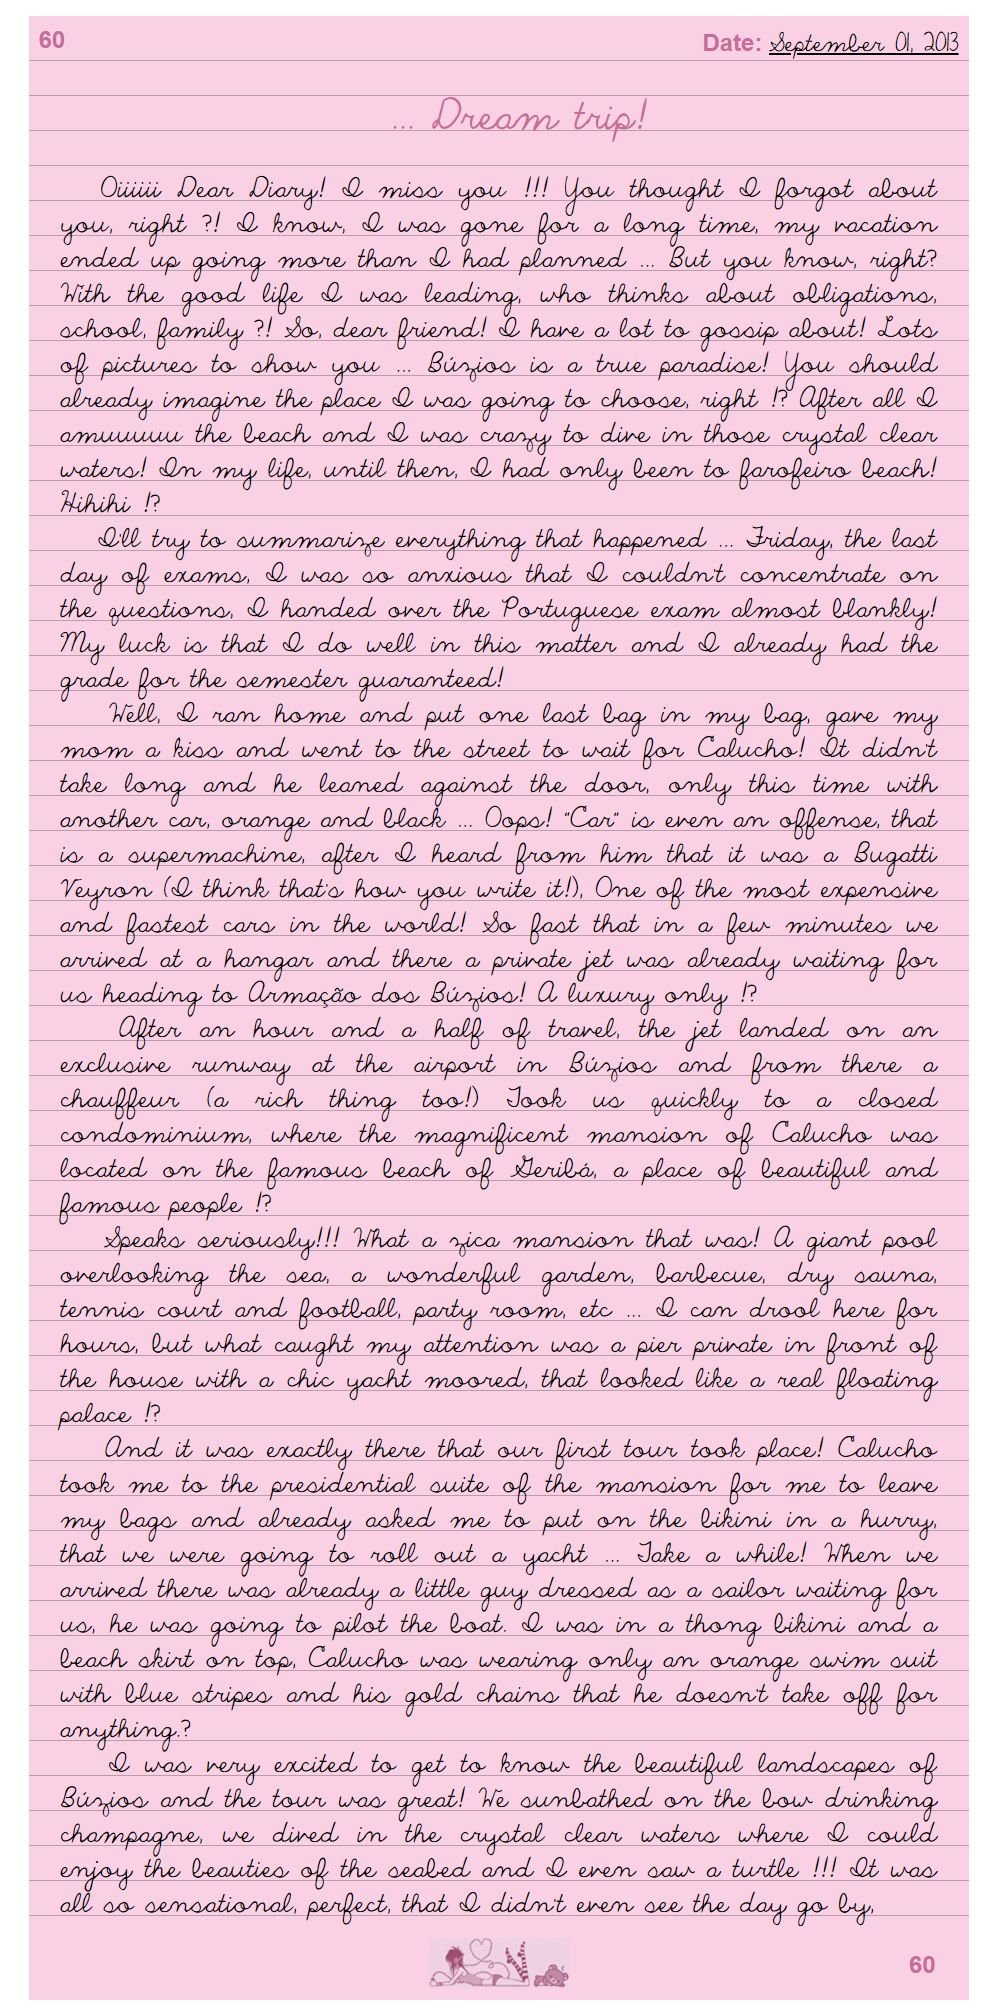 60
Date: September 01, 2013
... Dream trip!
Oiiiiii Dear Diary! I miss you !!! You thought I forgot about
you, right ?! I know, I was gone for a long time, my vacation
ended up going more than I had planned ... But you know, right?
With the good life I was leading, who thinks about obligations,
school, family ?! So, dear friend! I have a lot to gossip about! Lots
of pictures to show you ... Búzios is a true paradise! You should
already imagine the place I was going to choose, right !? After all I
amuuuuu the beach and I was crazy to dive in those crystal clear
waters! In my life, until then, I had only been to farofeiro beach!
Hihihi !?
I'll try to summarize everything that happened ... Friday, the last
day of exams, I was so anxious that I couldn't concentrate on
the questions, I handed over the Portuguese exam almost blankly!
My luck is that I do well in this matter and I already had the
grade for the semester guaranteed!
Well, I ran home and put one last bag in my bag, gave my
mom a kiss and went to the street to wait for Calucho! It didn't
take long and he leaned against the door, only this time with
another car, orange and black ... Oops! "Car" is even an offense, that
is a supermachine, after I heard from him that it was a Bugatti
Veyron (I think that's how you write it!), One of the most expensive
and fastest cars in the world! So fast that in a few minutes we
arrived at a hangar and there a private jet was already waiting for
us heading to Armação dos Búzios! A luxury only !?
After an hour and a half of travel, the jet landed on an
exclusive runway at the airport in Búzios and from there a
chauffeur (a rich thing too!) Took us quickly to a closed
condominium, where the magnificent mansion of Calucho was
located on the famous beach of Geribá, a place of beautiful and
famous people !?
Speaks seriously!!! What a zica mansion that was! A giant pool
overlooking the sea, a wonderful garden, barbecue, dry sauna,
tennis court and football, party room, etc ... I can drool here for
hours, but what caught my attention was a pier private in front of
the house with a chic yacht moored, that looked like a real floating
palace !?
And it was exactly there that our first tour took place! Calucho
took me to the presidential suite of the mansion for me to leave
my bags and already asked me to put on the bikini in a hurry,
that we were going to roll out a yacht ... Take a while! When we
arrived there was already a little guy dressed as a sailor waiting for
us, he was going to pilot the boat. I was in a thong bikini and a
beach skirt on top, Calucho was wearing only an orange swim suit
with blue stripes and his gold chains that he doesn't take off for
anything.?
I was very excited to get to know the beautiful landscapes of
Búzios and the tour was great! We sunbathed on the bow drinking
champagne, we dived in the crystal clear waters where I could
enjoy the beauties of the seabed and I even saw a turtle !!! It was
all so sensational, perfect, that I didn't even see the day go by,
60